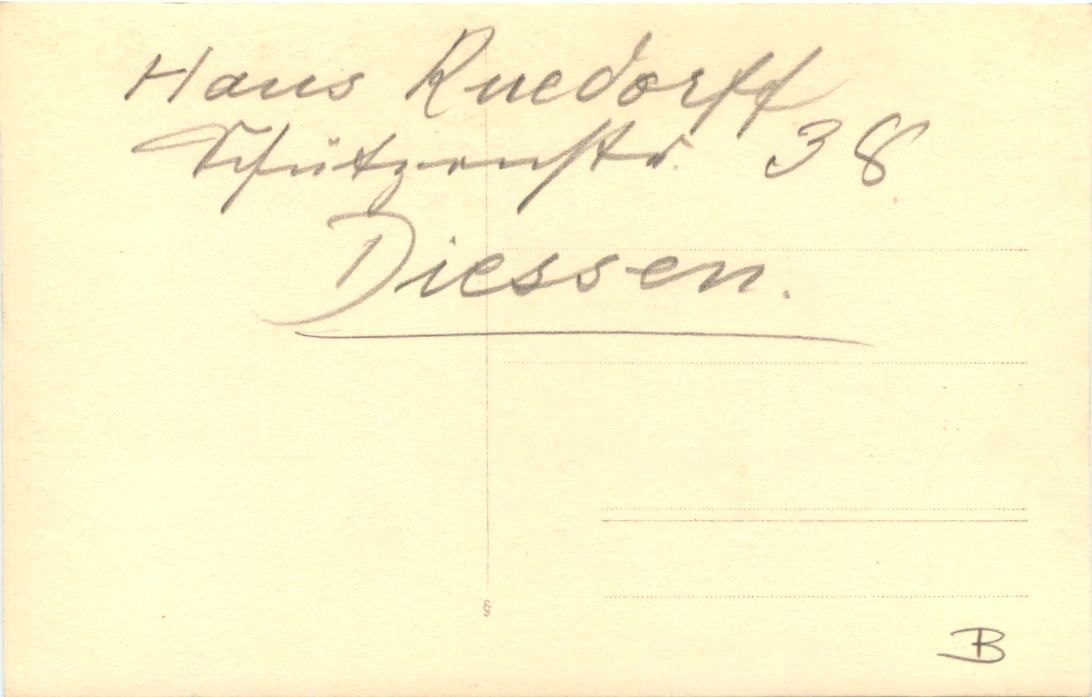 Hans Ruedorff
Schützenstr. 38
Diessen.
B